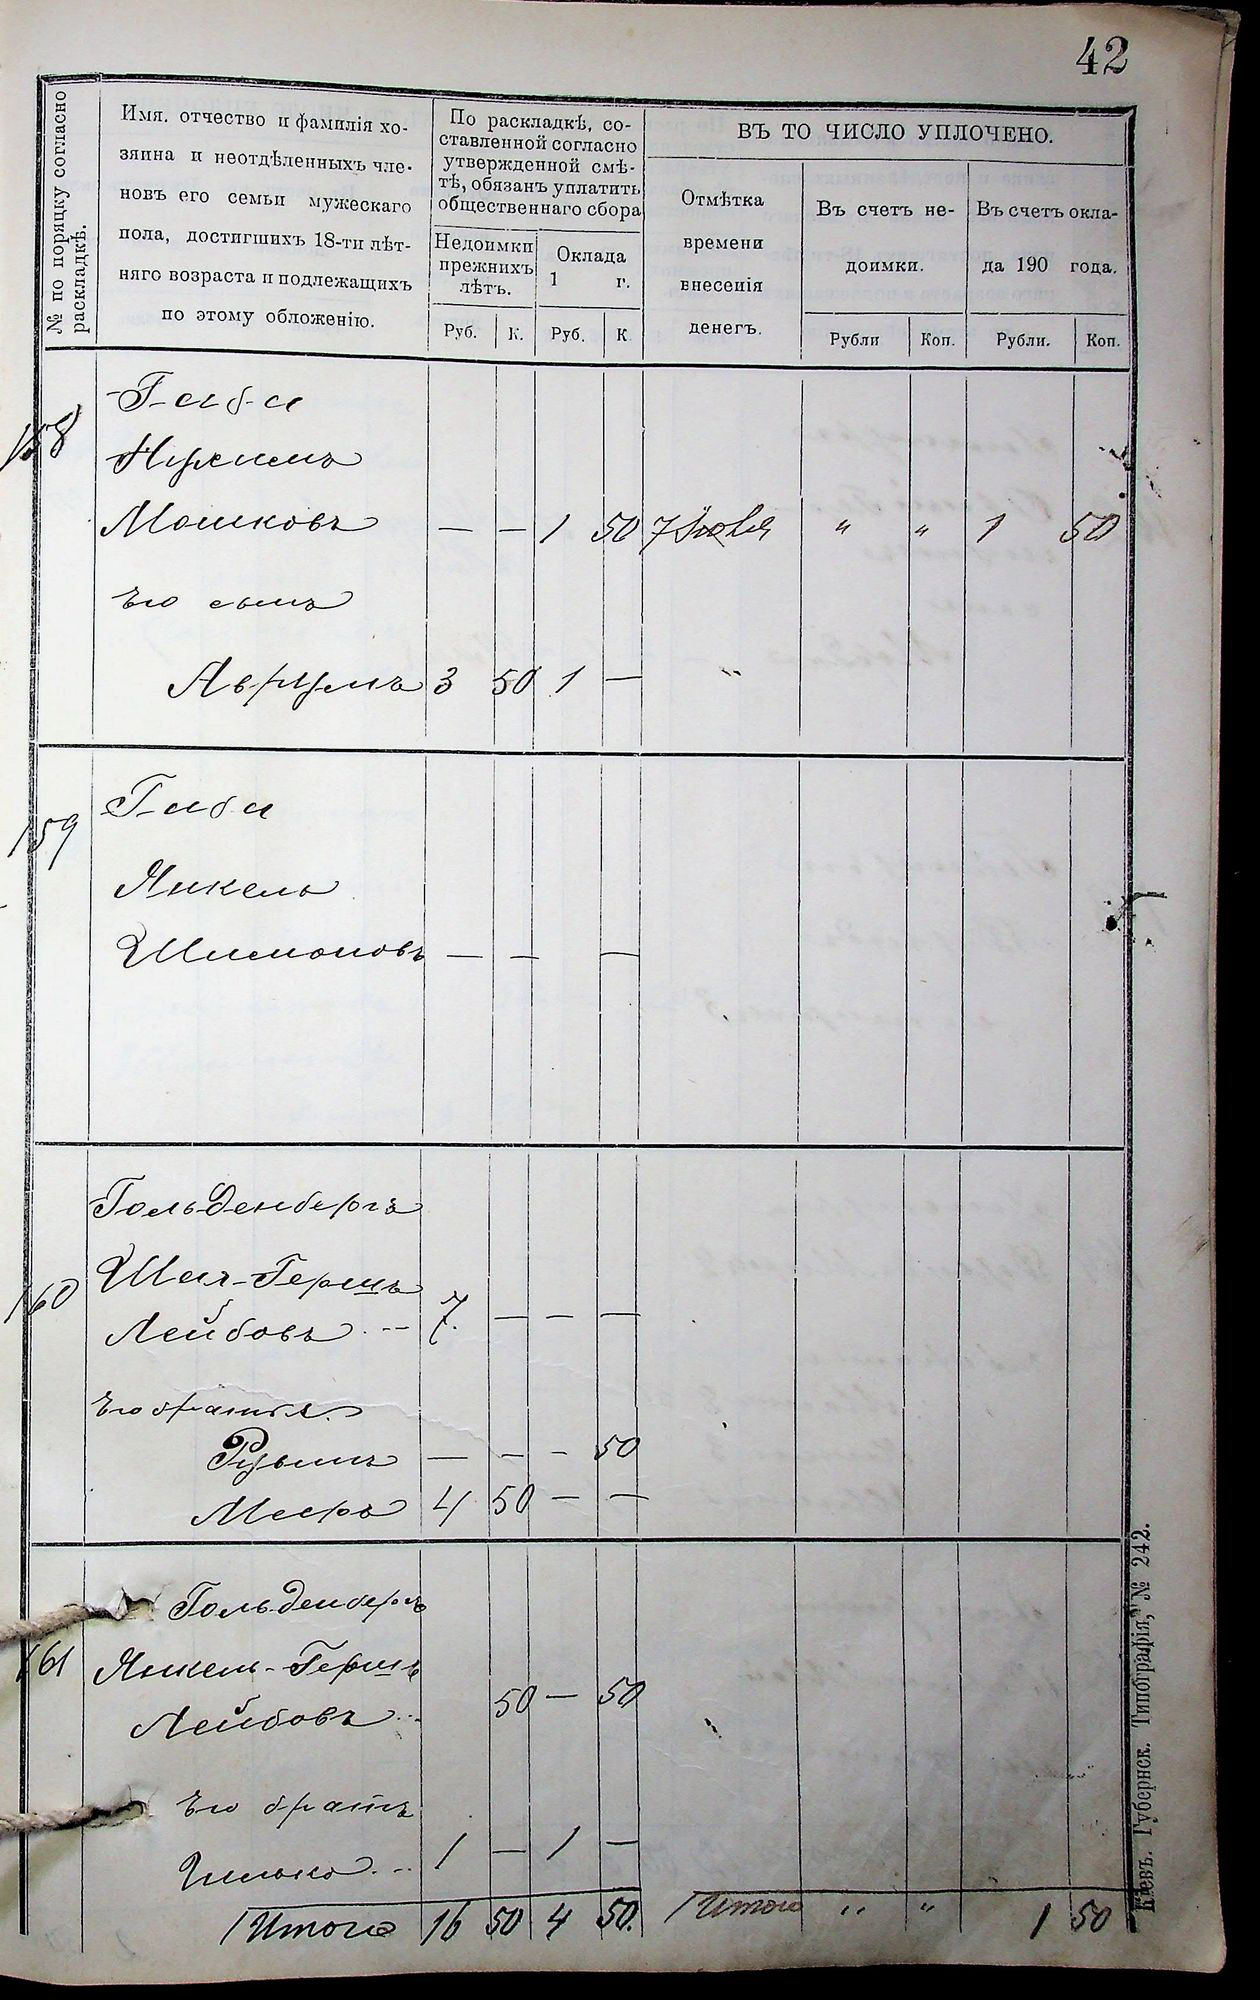 42
№ по порядку согласно раскладкѣ.
Имя. отчество и фамилія хо-
зяина и неотдѣленныхъ чле-
новъ его семьи мужескаго
пола, достигшихъ 18-ти лѣт-
няго возраста и подлежащихъ
по этому обложенію.
По раскладкѣ, со-
ставленной согласно
утвержденной смѣ-
тѣ, обязанъ уплатить
общественнаго сбора
Недоимки
прежнихъ
лѣтъ.
Оклада
1 г.
Руб. К. Руб. К
ВЪ ТО ЧИСЛО УПЛОЧЕНО.
Отмѣтка
времени
внесенія
денегъ.
Въ счетъ не-
доимки.
Въ счетъ окла-
да 190 года.
Рубли Коп. Рубли. Коп.
158
Гиби
Нухимъ
Мошковъ — — 1 50 7 Іюля " " 1 50
Его сынъ
Аврумъ 3 50 1 — "
159
Гиби
Янкель
Шимоновъ — — —
160
Гольденбергъ
Шая-Гершъ
Лейбовъ 7. — — —
Его братья
Рувинъ — — — 50
Мееръ 4 50 — —
161
Гольденбергъ
Янкель-Гершъ
Лейбовъ 50 — 50
Его братъ
Ицько 1 — 1 —
Итого 16 50 4 50. Итого " " 1 50
Кіевъ. Губернск. Типографія, № 242.